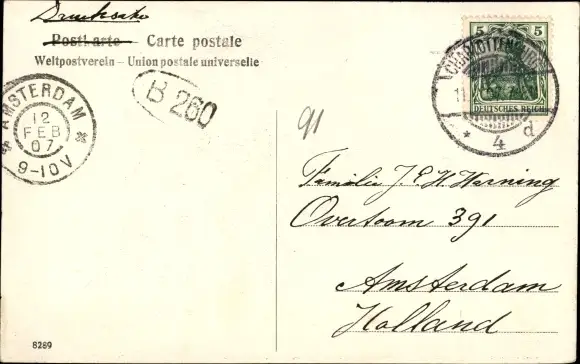 Drucksache
Postkarte – Carte postale
Weltpostverein – Union postale universelle
AMSTERDAM
12
FEB
07
9-10V
B 260
5 5
DEUTSCHES REICH
CHARLOTTENBURG
11
* 4 d
91
Familie J. E. H. Werning
Overtoom 391
Amsterdam
Holland
8289